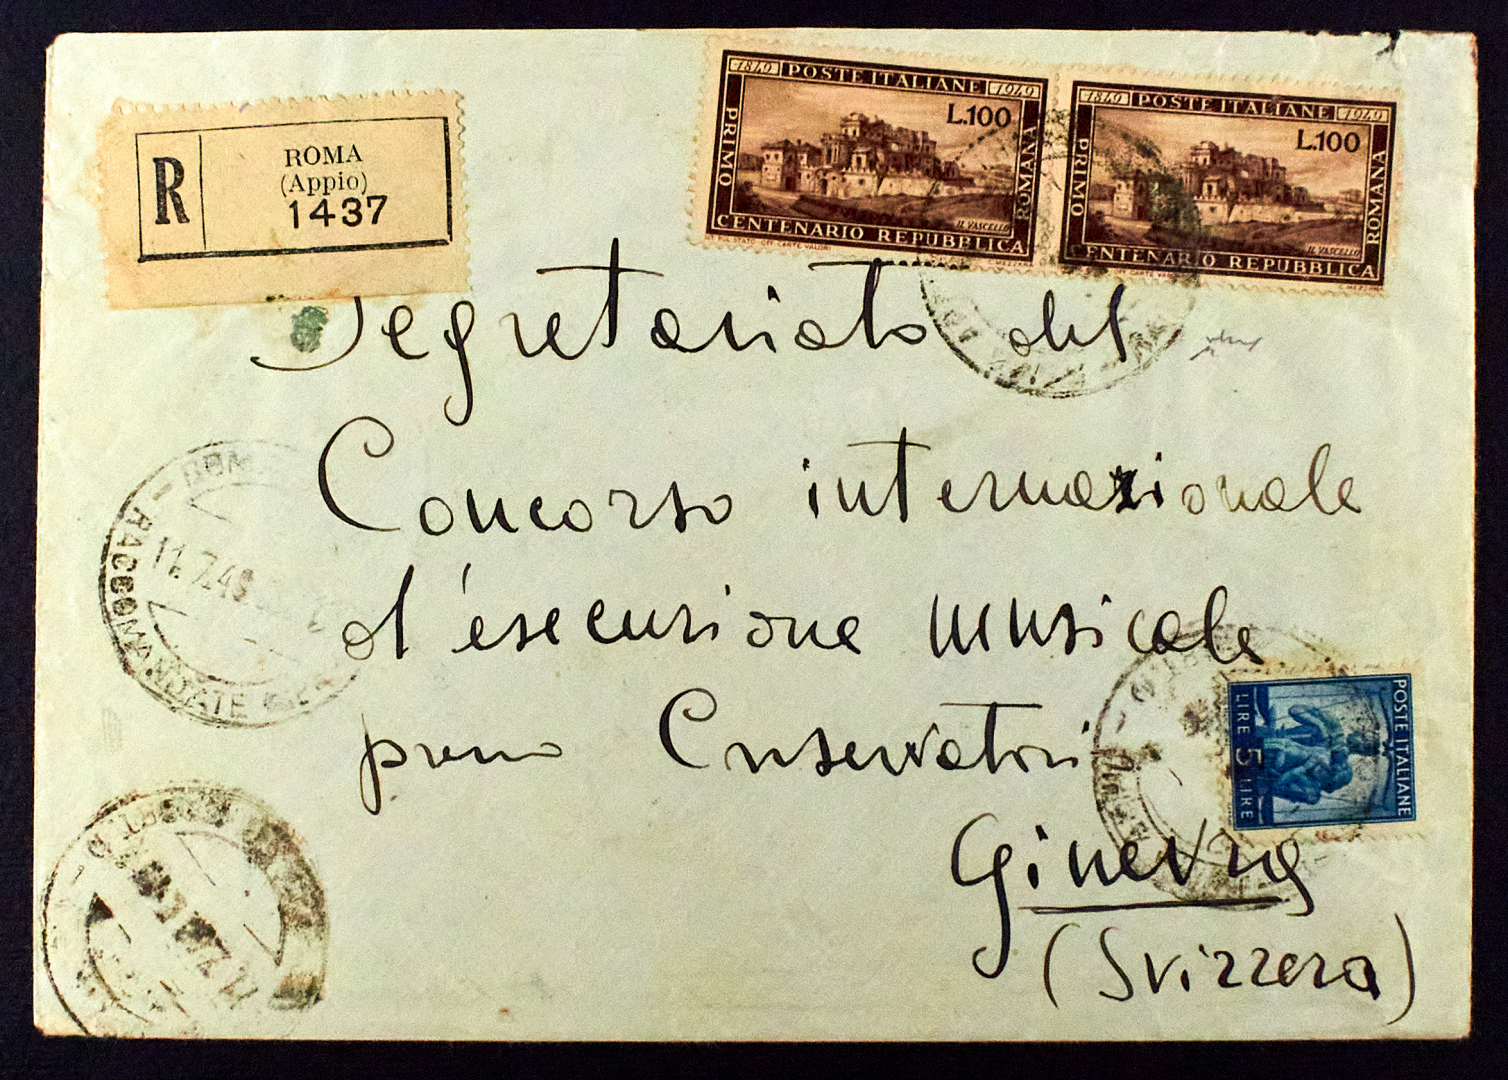 R
ROMA
(Appio)
1437
1849 POSTE ITALIANE 1949
L.100
PRIMO
ROMANA
IL VASCELLO
CENTENARIO REPUBBLICA
IST. POL. STATO OFF. CARTE VALORI
1849 POSTE ITALIANE 1949
L.100
PRIMO
ROMANA
IL VASCELLO
CENTENARIO REPUBBLICA
Segretariato del
Concorso internazionale
d'esecuzione musicale
presso Conservatori
Ginevra
(Svizzera)
ROMA
RACCOMANDATE
11.7.49
POSTE ITALIANE
LIRE 5 LIRE